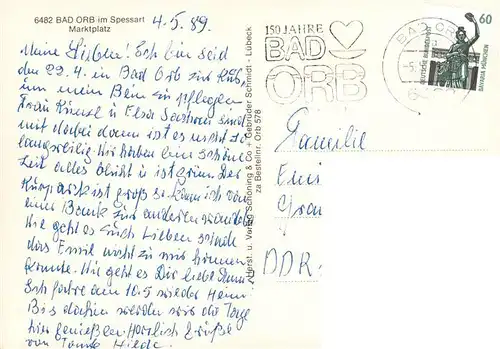 6482 BAD ORB im Spessart
Marktplatz
4.5.89.
Meine Lieben! Ich bin seid
den 29.4. in Bad Orb zur Kur
um mein Bein zu pflegen
Frau und Elsa sind
mit dabei dann ist es nicht so
langweilig. Wir haben eine schöne
Zeit alles blüht u. ist grün. Der
Kurpark ist groß so kann ich von
einer Bank zur anderen wandern
Wie geht es Euch Lieben schade
das Emil nicht zu mir kommen
konnte. Wie geht es Dir liebe
Ich fahre am 10.5 wieder Heim.
Bis dahin werden wir die Tage
hier genießen. Herzlich Grüße
von Tante Hilde.
Horst u. Verlag Schöning & Co + Gebrüder Schmidt · Lübeck
za Bestellnr. Orb 578
150 JAHRE
BAD
ORB
BAD ORB
60
DEUTSCHE BUNDESPOST
BAVARIA MÜNCHEN
Familie
DDR.